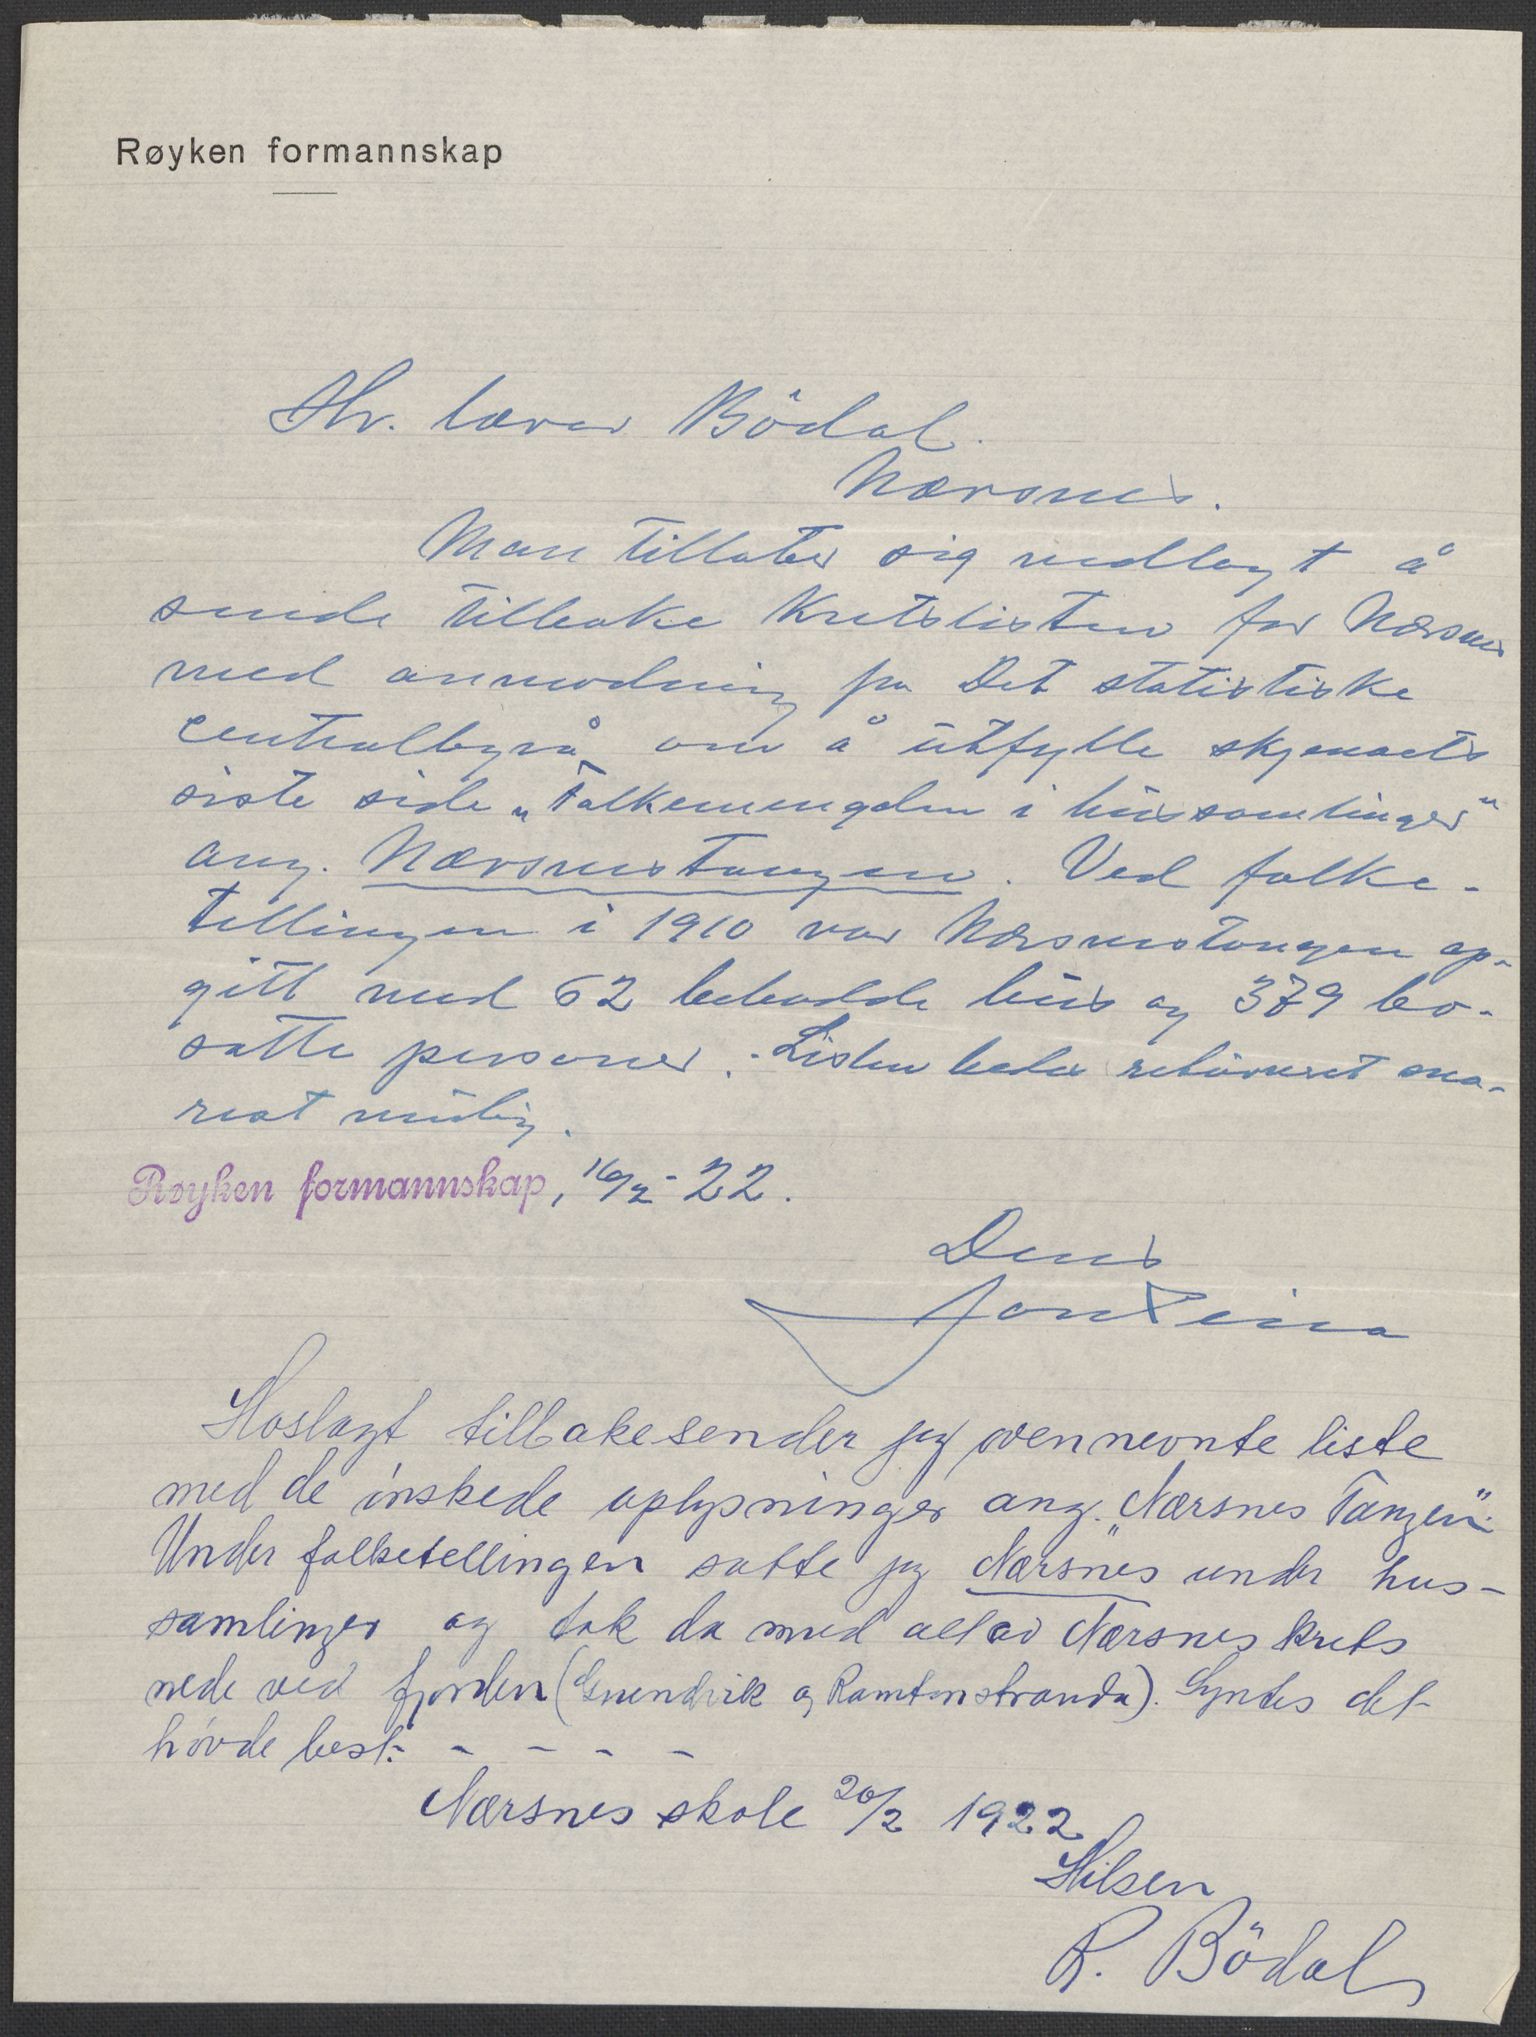 Røyken formannskap
Hr. lærer Bödal.
Nærsnes.
Man tillater sig vedlagt å
sende tilbake kretslisten for Nærsnes
med anmodning fra Det statistiske
centralbyrå om å utfylle skjemaets
siste side „Folkemengden i hussamlinger“
ang. Nærsnestangen. Ved folke-
tellingen i 1910 var Nærsnestangen op-
gitt med 62 bebodde hus og 379 bo-
satte personer. - Listen bedes returneret sna-
rest mulig.
Røyken formannskap, 16/2 - 22.
Deres
Hoslagt tilbakesender jeg ovennevnte liste
med de ønskede oplysninger ang. „Nærsnes Tangen“.
Under folketellingen satte jeg „Nærsnes“ under hus-
samlinger og tok da med all av Nærsnes krets
nede ved fjorden (Grundvik og Ramtonstranda). Syntes det
høvde best. - - - - -
Nærsnes skole 20/2 1922
Hilsen
R. Bödal